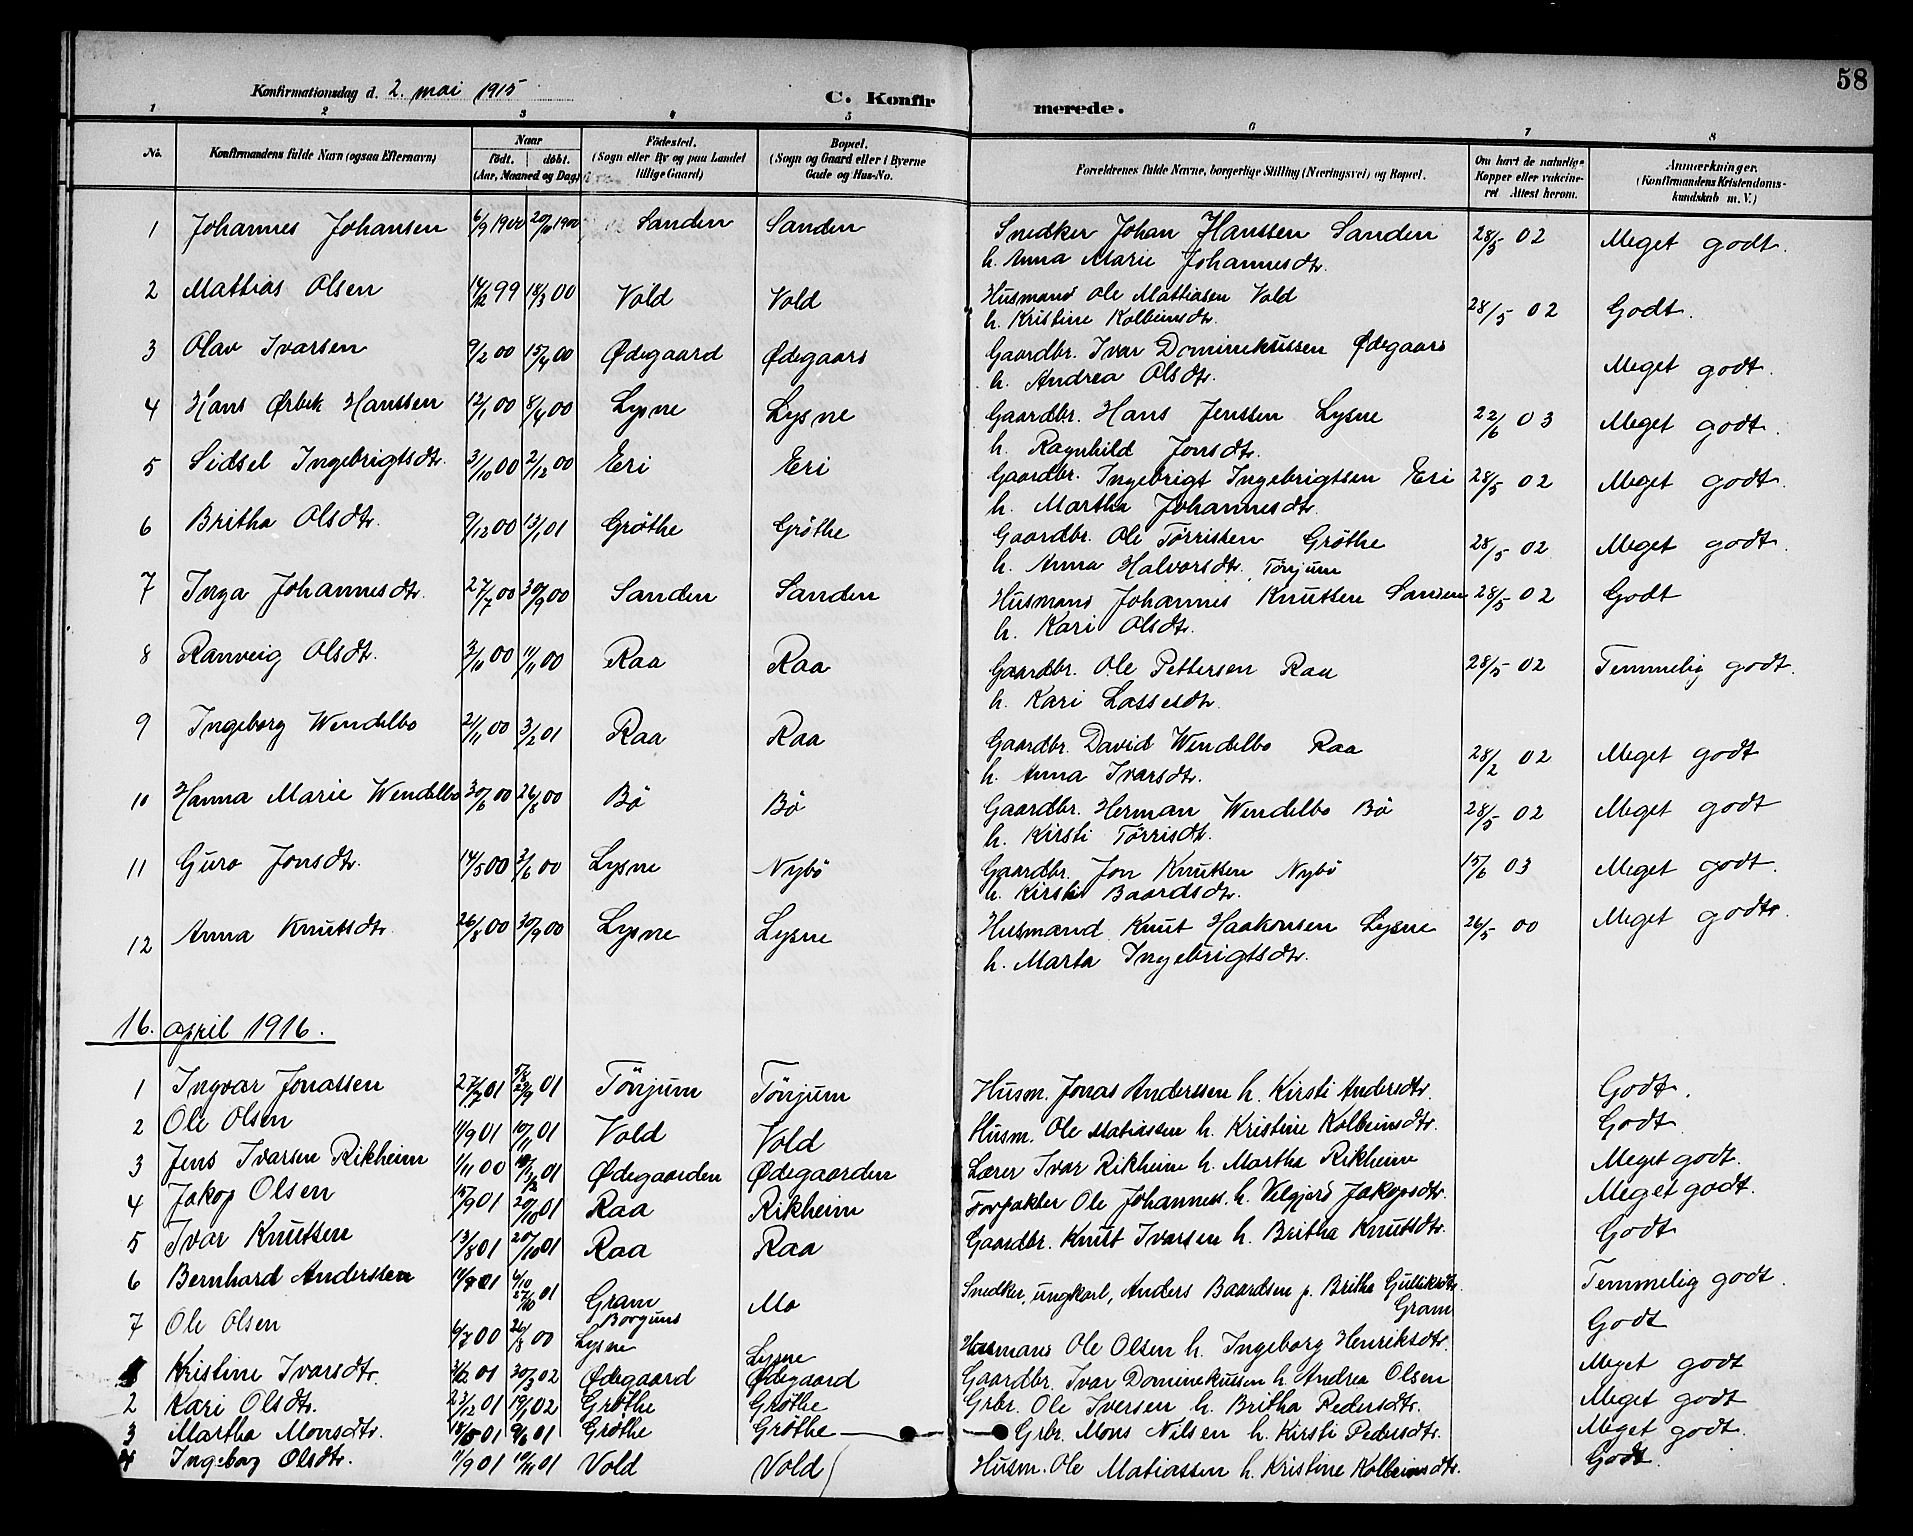 58
Konfirmationsdag d. 2. mai 1915
C. Konfirmerede.
1 2 3 4 5 6 7 8
No. Konfirmandens fulde Navn (ogsaa Efternavn) Naar født. døbt. (Aar, Maaned og Dag) Födested. (Sogn eller By og paa Landet tillige Gaard) Bopæl. (Sogn og Gaard eller i Byerne Gade og Hus-No. Forældrenes fulde Navne, borgerlige Stilling (Næringsvei) og Bopæl. Om havt de naturlige Kopper eller vaccineret Attest herom. Anmærkninger. (Konfirmandens Kristendomskundskab m. V.)
1 Johannes Johansen 6/9 1900 20/10 1900 Sanden Sanden Snedker Johan Hanssen Sanden 28/5 02 Meget godt.
h. Anna Marie Johannesdtr.
2 Mattias Olsen 14/12 99 18/3 00 Vold Vold Husmand Ole Mattiasen Vold 28/5 02 Godt.
h. Kristine Kolbeinsdtr.
3 Olav Ivarsen 9/2 00 15/4 00 Ødegaard Ødegaard Gaardbr. Ivar Dominekussen Ødegaard Meget godt.
h. Andrea Olsdtr.
4 Hans Ørbek Hanssen 12/1 00 8/4 00 Lysne Lysne Gaardbr. Hans Jenssen Lysne 22/6 03 Meget godt.
h. Ragnhild Jonsdtr.
5 Sidsel Ingebrigtsdtr. 3/10 00 2/12 00 Eri Eri Gaardbr. Ingebrigt Ingebrigtsen Eri 28/5 02 Meget godt.
h. Martha Johannesdtr.
6 Britha Olsdtr. 9/12 00 13/1 01 Gröthe Gröthe Gaardbr. Ole Törrissen Gröthe 28/5 02 Meget godt.
h. Anna Halvorsdtr. Tönjum
7 Inga Johannesdtr. 27/7 00 30/9 00 Sanden Sanden Husmand Johannes Knutsen Sanden 28/5 02 Godt
h. Kari Olsdtr.
8 Ranveig Olsdtr. 3/11 00 11/11 00 Raa Raa Gaardbr. Ole Pettersen Raa 28/5 02 Temmelig godt.
h. Kari Lassesdtr.
9 Ingeborg Wendelbo 21/11 00 3/2 01 Raa Raa Gaardbr. David Wendelbo Raa 28/2 02 Meget godt
h. Anna Ivarsdtr.
10 Hanna Marie Wendelbo 30/6 00 26/8 00 Bö Bö Gaardbr. Herman Wendelbo Bö 28/5 02 Meget godt
h. Kirsti Törrisdt.
11 Guro Jonsdtr. 14/5 00 3/6 00 Lysne Nybö Gaardbr. Jon Knutsen Nybö 15/6 03 Meget godt.
h. Kirsti Baardsdtr.
12 Anna Knutsdtr 26/8 00 30/9 00 Lysne Lysne Husmand Knut Haakonsen Lysne 26/5 00 Meget godt.
h. Marta Ingebrigtsdtr.
16. april 1916.
1 Ingvar Jonassen 27/7 01 5/8 29/9 01 Tönjum Tönjum Husm. Jonas Anderssen h. Kirsti Andersdtr. Godt.
2 Ole Olsen 11/9 01 10/11 01 Vold Vold Husm. Ole Matiassen h. Kristine Kolbeinsdtr. Godt.
3 Jens Ivarsen Rikheim 1/11 00 01 Ødegaarden Ødegaarden Lærer Ivar Rikheim h. Martha Rikheim Meget godt.
4 Jakop Olsen 15/9 01 20/10 01 Raa Rikheim Forpakter Ole Johanness. h. Velgjerd Jakopsdtr. Meget godt.
5 Ivar Knutsen 13/8 01 20/10 01 Raa Raa Gaardbr. Knut Ivarsen h. Britha Knutsdtr. Godt
6 Bernhard Anderssen 01 6/10 27/10 01 Gram Borgund Mo Snedker, ungkarl, Anders Baardsen p. Britha Gulliksdtr. Gram Temmelig godt.
7 Ole Olsen 6/7 00 26/8 00 Lysne Lysne Husmand Ole Olsen h. Ingeborg Henriksdtr. Godt
1 Kristine Ivarsdtr. 01 30/3 02 Ødegaard Ødegaard Gaardbr. Ivar Dominekussen h Andrea Olsen Meget godt
2 Kari Olsdtr. 23/12 01 19/1 02 Gröthe Gröthe Grbr. Ole Iversen h. Britha Pedersdtr. Meget godt
3 Martha Monsdtr. 18/5 01 9/6 01 Gröthe Gröthe Grbr. Mons Nilsen h. Kirsti Pedersdtr. Meget godt.
4 Ingeborg Olsdtr. 11/9 01 10/11 01 Vold Vold Husm. Ole Matiassen h. Kristine Kolbeinsdtr. Godt.